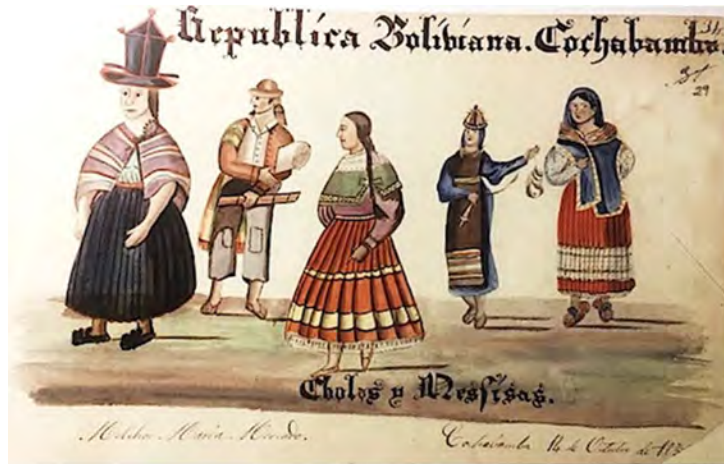 Republica Boliviana. Cochabamba.
29
Cholos y Mestisas.
Melchor María Mercado.
Cochabamba 14 de Octubre de